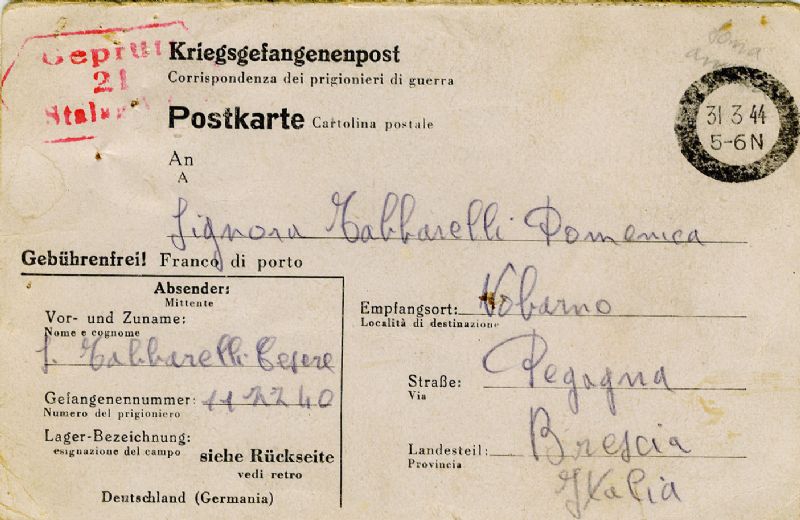 Geprüft
21
Stalag
Kriegsgefangenenpost
Corrispondenza dei prigionieri di guerra
Postkarte Cartolina postale
31 3 44
5-6 N
An
A
Signora Tabbarelli Domenica
Gebührenfrei! Franco di porto
Absender:
Mittente
Vor- und Zuname:
Nome e cognome
S. Tabbarelli Cesere
Gefangenennummer: 112240
Numero del prigioniero
Lager-Bezeichnung:
esignazione del campo
siehe Rückseite
vedi retro
Deutschland (Germania)
Empfangsort: Vobarno
Località di destinazione
Straße: Pegagna
Via
Landesteil: Brescia
Provincia
Italia